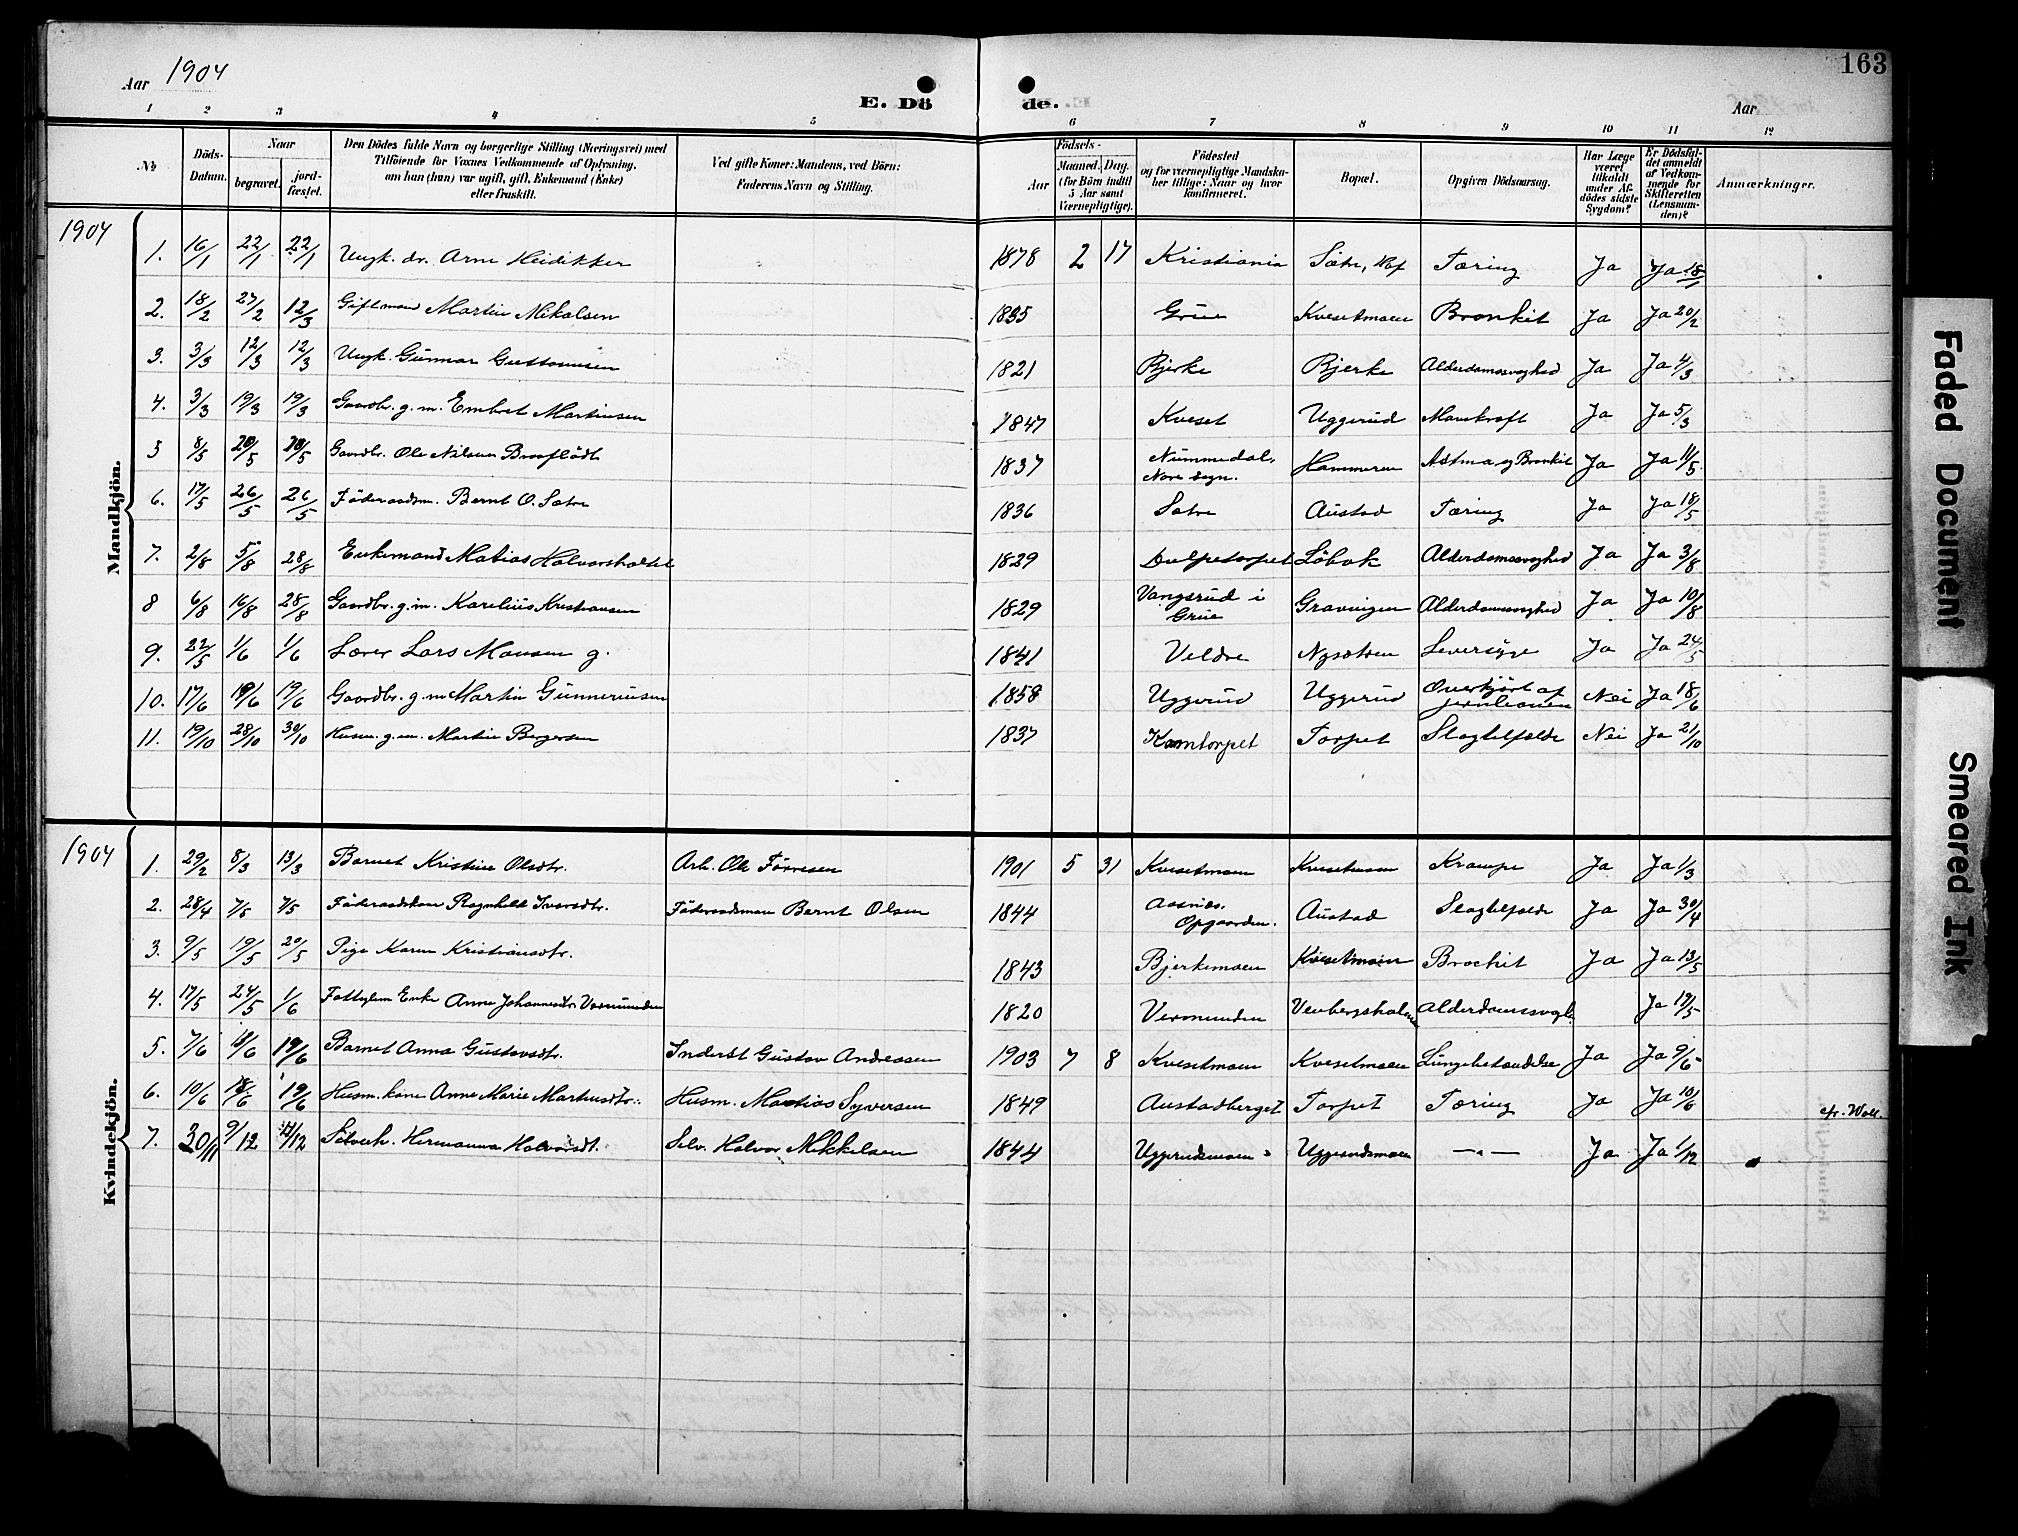 163
Aar 1904
E. Dö de.
Aar
1 2 3 4 5 6 7 8 9 10 11 12
No
Döds-Datum.
Naar
begravet.
jord-fæstet.
Den Dödes fulde Navn og borgerlige Stilling (Næringsvei) med
Tilföiende for Voxnes Vedkommende af Oplysning,
om han (hun) var ugift, gift, Enkemand (Enke)
eller fraskilt.
Ved gifte Koner: Mandens, ved Börn:
Faderens Navn og Stilling.
Födsels-
Aar
Maaned. Dag.
(for Börn indtil
5 Aar samt
Værnepligtige).
Födested
og for værnepligtige Mandskaber tillige: Naar og hvor
konfirmeret.
Bopæl.
Opgiven Dödsaarsag.
Har Læge
været
tilkaldt
under Afdödes sidste
Sygdom?
Er Dödsfaldet anmeldt
af Vedkommende for
Skifteretten
(Lensmanden)?
Anmærkninger.
Mandkjön.
1904
1. 16/1 22/1 22/1 Ungk. dr. Arne Heidikker 1878 2 17 Kristiania Sæter, Hof Tæring Ja Ja 18/1
2. 18/2 27/2 12/3 Giftmand Martin Mikalsen 1835 Grue Kvesetmoen Bronkit Ja Ja 20/2
3. 3/3 12/3 12/3 Ungk. Gunnar 1821 Bjerke Bjerke Alderdomssvaghed Ja Ja 4/3
4. 3/3 19/3 19/3 Gaardbr. g. m. Embret Martinsen 1847 Kveset Uggerud Mavekræft Ja Ja 5/3
5 8/5 20/5 20/5 Gaardbr. Ole Nilsen 1837 Nummedal, Nore sogn. Hammeren Astma og Bronkit Ja Ja 11/5
6. 17/5 26/5 26/5 Föderaadsm. Bernt O. Sætre 1836 Sætre Austad Tæring Ja Ja 18/5
7. 2/8 5/8 28/8 Enkemand Matias Halvorsholtet 1829 Dulpetorpet Löbak Alderdomssvaghed Ja Ja 3/8
8 6/8 16/8 28/8 Gaardbr. g. m. Karelius Kristiansen 1829 Vangsrud i Grue Gravingen Alderdomssvaghed Ja Ja 10/8
9. 22/5 1/6 1/6 Lærer Lars Monsen g. 1841 Veldre Nysæteren Leversyge Ja Ja 24/5
10. 17/6 19/6 19/6 Gaardbr. g. m. Martin Gunneriusen 1858 Uggerud Uggerud Overkjört af jernbanen Nei Ja 18/6
11. 19/10 28/10 30/10 Husm. g. m. Martin Bergersen 1837 Komtorpet Torpet Slagtilfælde Nei Ja 21/10
Kvindekjön.
1904
1. 29/2 8/3 13/3 Barnet Kristine Olsdtr. Arb. Ole Törresen 1901 5 31 Kvesetmoen Kvesetmoen Krampe Ja Ja 1/3
2. 28/4 7/5 7/5 Föderaadskone Ragnhild Iversdtr. Föderaadsmann Bernt Olsen 1844 Aasnes, Opgaarden. Austad Slagtilfælde Ja Ja 30/4
3. 9/5 19/5 20/5 Pige Karen Kristiansdtr. 1843 Bjerkemoen Kvesetmoen Brockit Ja Ja 13/5
4. 17/5 24/5 1/6 Fattiglem Enke Anne Johannesdtr. Værmunden 1820 Vermunden Venbergsholmen Alderdomssvagh. Ja 19/5
5. 7/6 18/6 19/6 Barnet Anna Gustavsdtr. Inderst Gustav Andreasen 1903 7 8 Kvesetmoen Kvesetmoen Lungebetændelse Ja Ja 9/6
6. 10/6 18/6 19/6 Husm. kone Anne Marie Martinsdtr. Husm. Matias Syversen 1849 Austadberget Torpet Tæring Ja Ja 10/6
7. 30/11 9/12 11/12 Selveh. Hermanna Halvorsdt. Selv. Halvor Mikkelsen 1844 Uggerudsmoen Uggerudsmoen — „ — Ja Ja 1/12
Faded Document
Smeared Ink